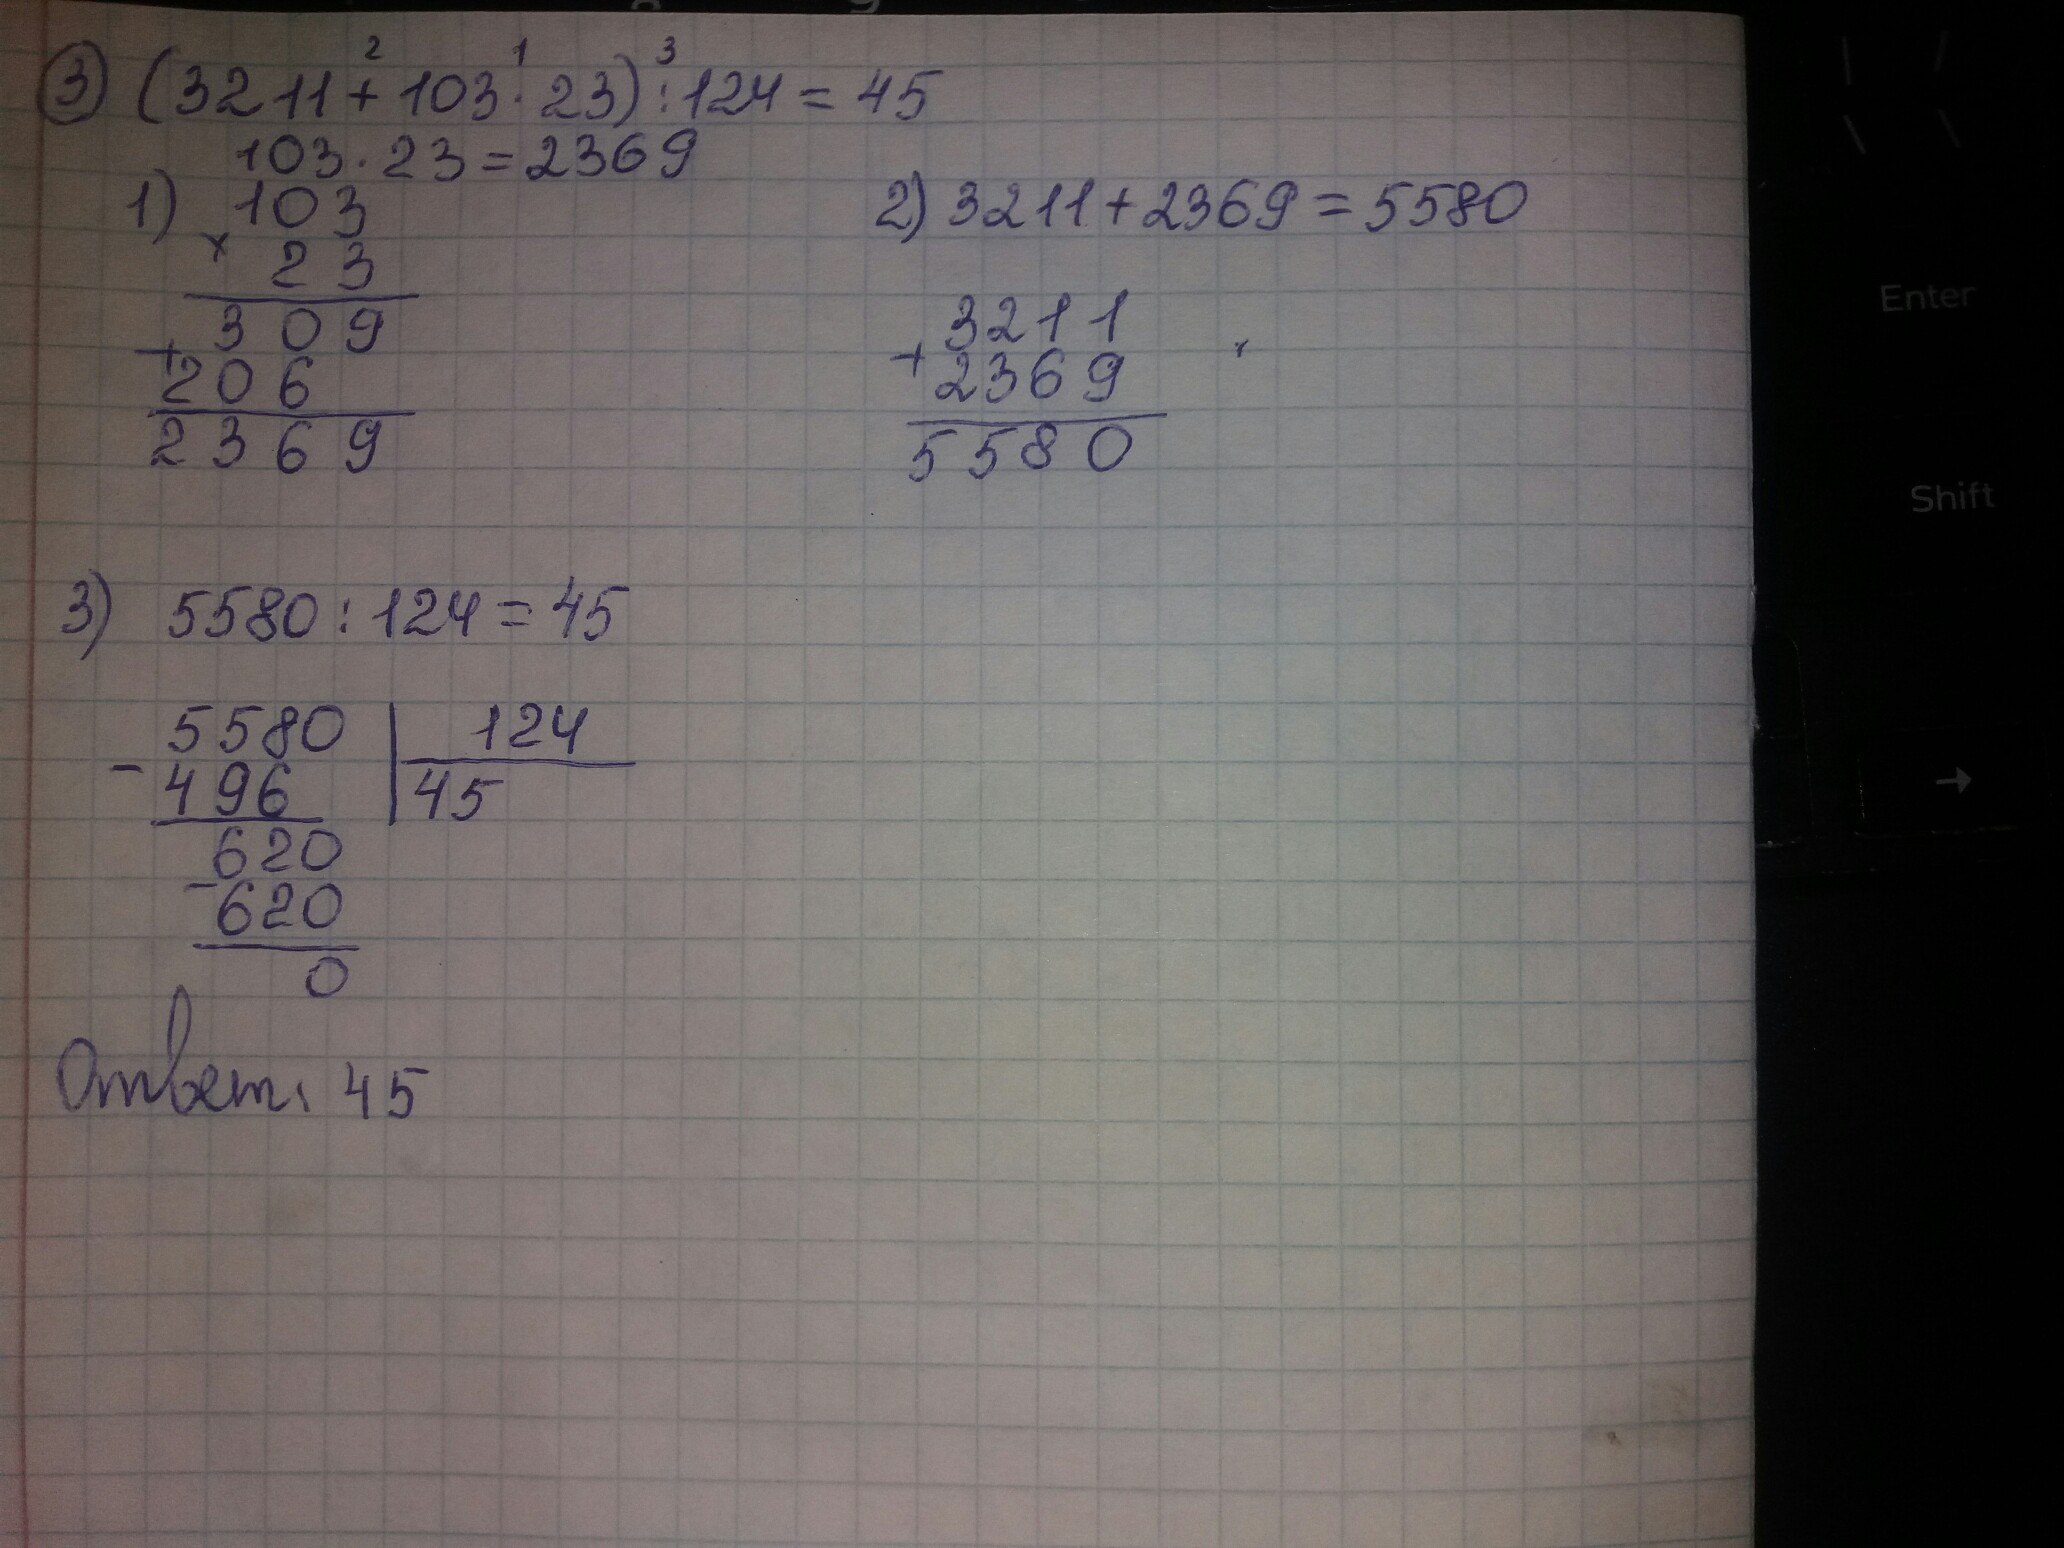 3) (3211 + 103 · 23) : 124 = 45
2 1 3
103 · 23 = 2369
1) 103
× 23
309
+
206
2369
2) 3211 + 2369 = 5580
3211
+
2369
5580
3) 5580 : 124 = 45
5580 | 124
- 496 | 45
620
- 620
0
Ответ: 45
Enter
Shift
→